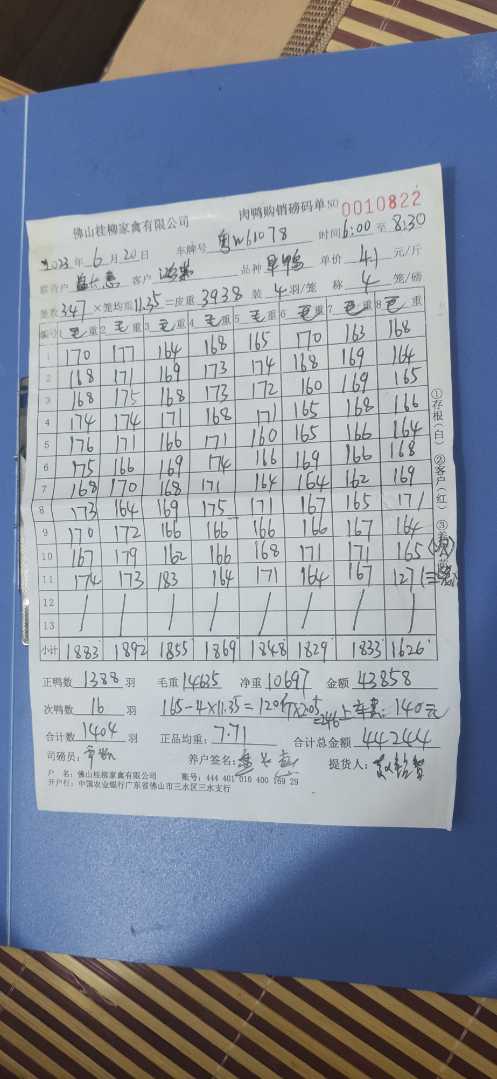 佛山桂柳家禽有限公司 肉鸭购销磅码单 NO 0010822
2023年6月20日 车牌号 粤W61078 时间6:00至8:30
客户 品种 旱鸭 单价 4.1 元/斤
笼数347×笼均重11.35=皮重3938 装4羽/笼 称4笼/磅
编号 1毛重 2毛重 3毛重 4毛重 5毛重 6毛重 7毛重 8毛重
1 170 177 164 168 165 170 163 168
2 168 171 169 173 174 168 169 164
3 168 175 168 173 172 160 169 165
4 174 174 171 168 171 165 168 166
5 176 171 166 171 160 165 166 164
6 175 166 169 174 166 169 166 168
7 168 170 168 171 164 164 162 169
8 173 164 169 175 171 167 165 171
9 170 172 166 166 166 166 167 164
10 167 179 162 166 168 171 171 165
11 174 173 183 164 171 164 167 127
12 / / / / / / / /
13
小计 1883 1892 1855 1869 1848 1829 1833 1626
①存根(白) ②客户(红)
正鸭数 1388 羽 毛重 14635 净重 10697 金额 43858
次鸭数 16 羽 165-4×11.35=120斤×2.05=246 上车费:140元
合计数 1404 羽 正品均重:7.71 合计总金额 44244
司磅员: 养户签名: 提货人:
户 名:佛山桂柳家禽有限公司 账号:444 401 010 400 169 29
开户行:中国农业银行广东省佛山市三水区三水支行